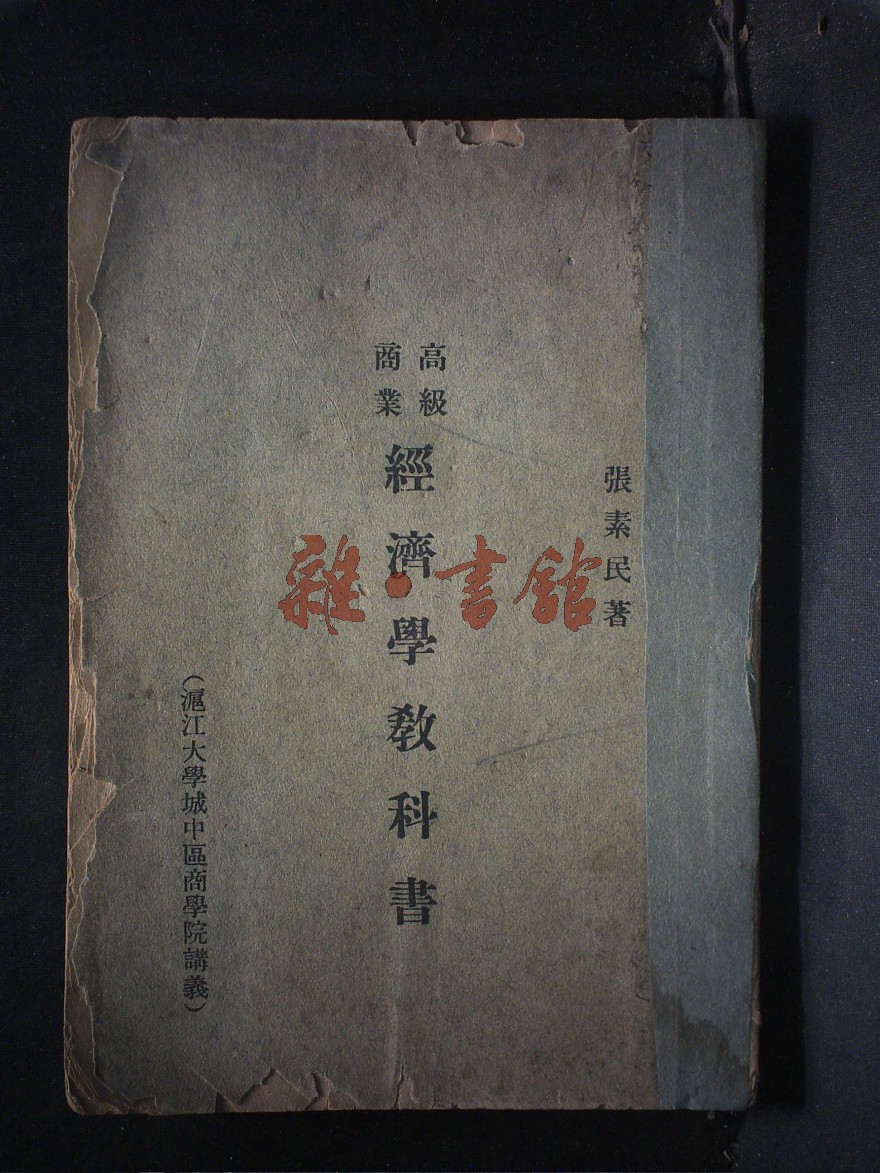 張素民著
高級
商業
經濟學教科書
(滬江大學城中區商學院講義)
雜·書館